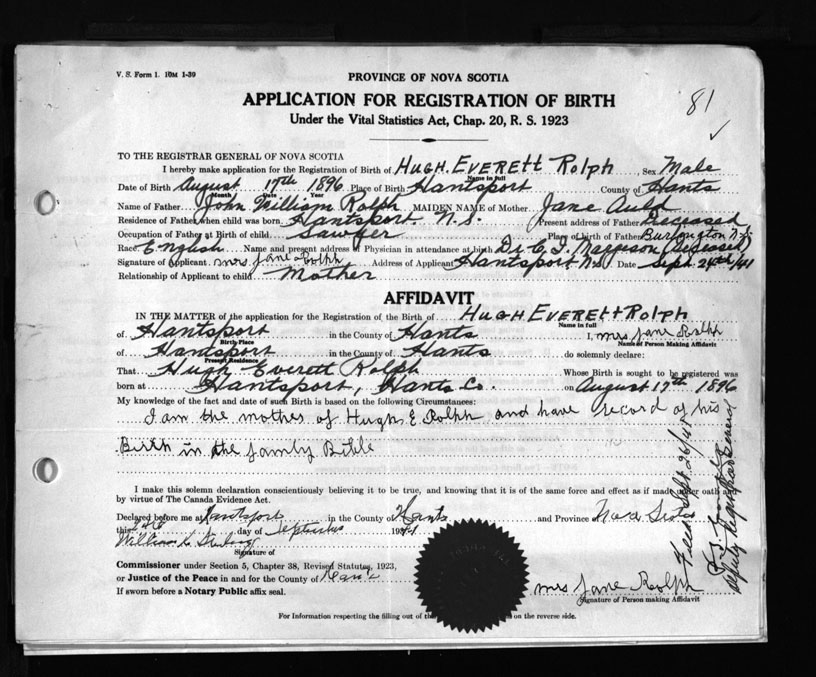 V. S. Form 1. 10M 1-39
PROVINCE OF NOVA SCOTIA
APPLICATION FOR REGISTRATION OF BIRTH
Under the Vital Statistics Act, Chap. 20, R. S. 1923
81
TO THE REGISTRAR GENERAL OF NOVA SCOTIA
I hereby make application for the Registration of Birth of HUGH. EVERETT Rolph Sex Male
Name in full
Date of Birth August 17th 1896 Place of Birth Hantsport County of Hants
Month Date Year
Name of Father John William Rolph MAIDEN NAME of Mother Jane Auld
Residence of Father when child was born Hantsport. N.S. Present address of Father Deceased
Occupation of Father at Birth of child Sawyer Place of birth of Father Burlington N.S.
Race English Name and present address of Physician in attendance at birth Dr. C. I. Margeson (deceased)
Signature of Applicant Mrs Jane Rolph Address of Applicant Hantsport N.S. Date Sept 24th/41
Relationship of Applicant to child Mother
AFFIDAVIT
IN THE MATTER of the application for the Registration of the Birth of HUGH EVERETT Rolph
Name in full
of Hantsport in the County of Hants I, Mrs Jane Rolph
Birth Place Name of Person Making Affidavit
of Hantsport in the County of Hants do solemnly declare:
Present Residence
That Hugh Everett Rolph Whose Birth is sought to be registered was
born at Hantsport, Hants Co. on August 17th 1896
My knowledge of the fact and date of such Birth is based on the following Circumstances:
I am the mother of Hugh E. Rolph and have record of his
Birth in the family Bible
I make this solemn declaration conscientiously believing it to be true, and knowing that it is of the same force and effect as if made under oath and
by virtue of The Canada Evidence Act.
Declared before me at Hantsport in the County of Hants and Province of Nova Scotia
this 24th day of September 1941
William
Signature of
Commissioner under Section 5, Chapter 38, Revised Statutes, 1923,
or Justice of the Peace in and for the County of Hants
If sworn before a Notary Public affix seal.
Mrs Jane Rolph
Signature of Person making Affidavit
For Information respecting the filling out of on the reverse side.
Filed Sept 26/41
Deputy Registrar General